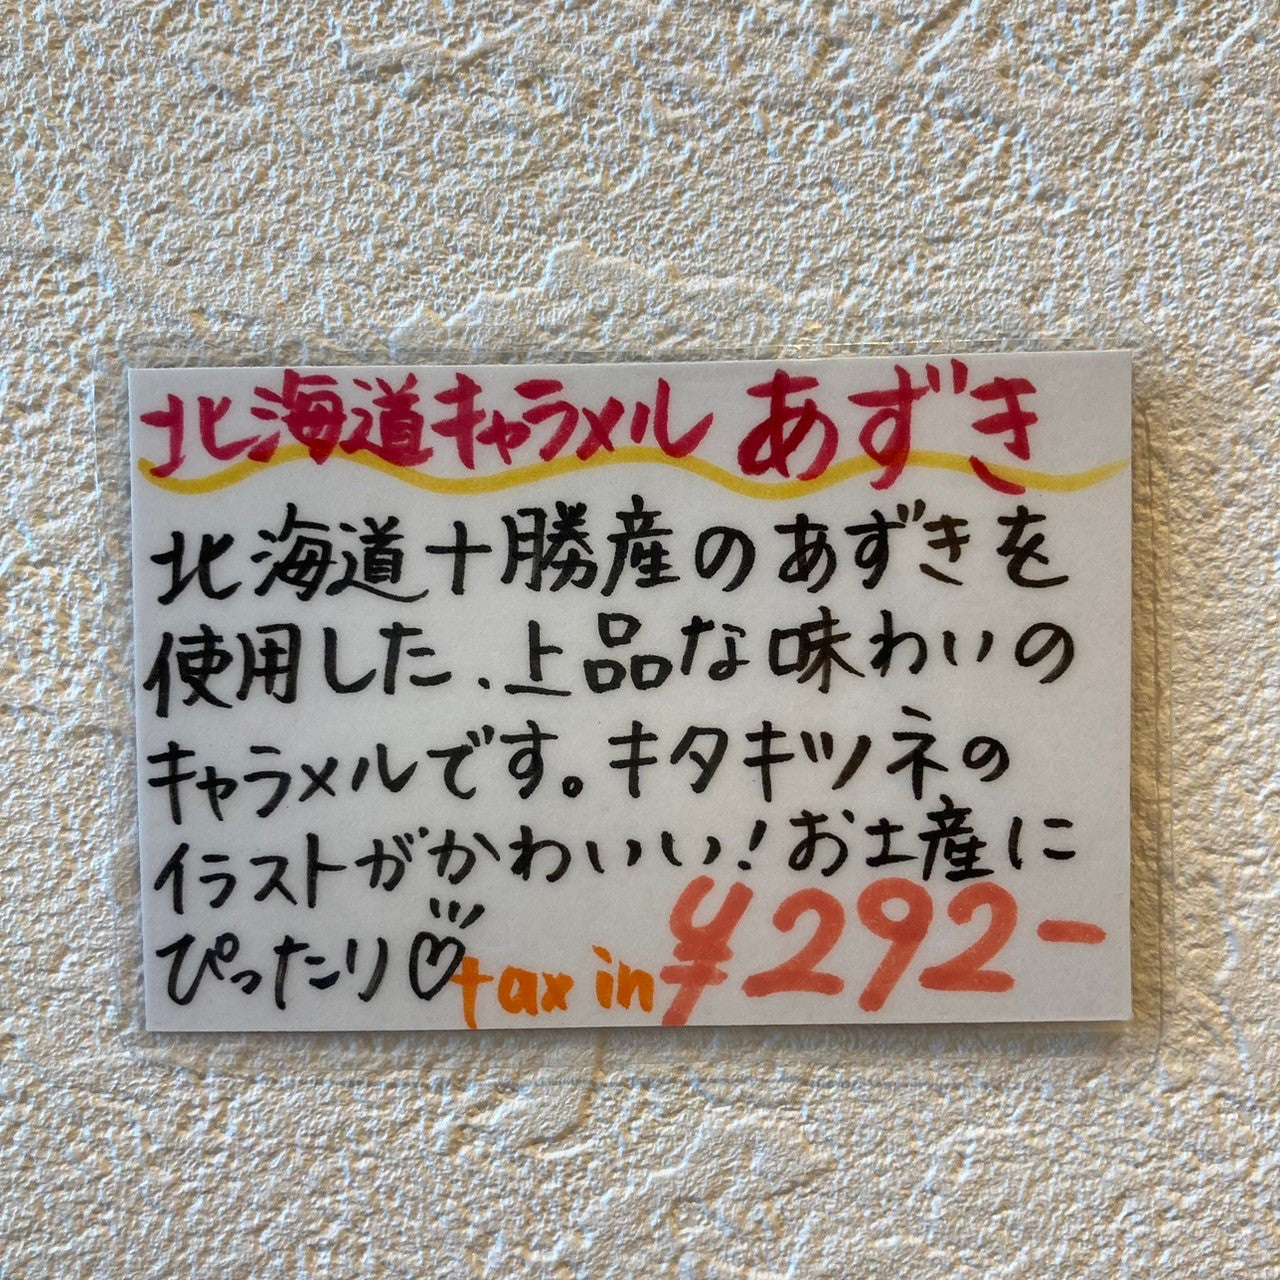 北海道キャラメル あずき
北海道十勝産のあずきを
使用した、上品な味わいの
キャラメルです。キタキツネの
イラストがかわいい!お土産に
ぴったり♡ tax in ¥292-